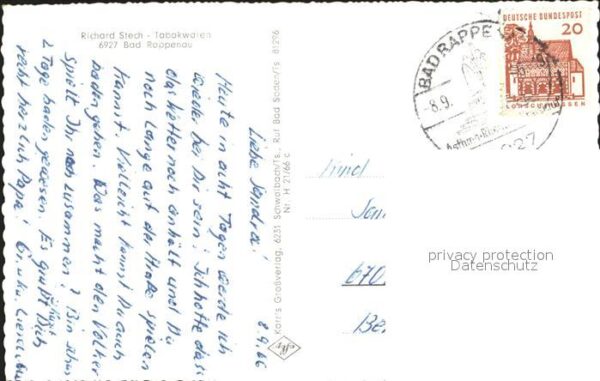 Richard Stech - Tabakwaren
6927 Bad Rappenau
8.9.66
Liebe Sandra!
Heute in acht Tagen werde ich
wieder bei Dir sein. Ich hoffe dass
das Wetter noch anhält und Du
noch lange auf der Straße spielen
kannst. Vielleicht kannst Du auch
baden gehen. Was macht der Volker
Spielt Ihr noch zusammen? Bin schon
2 Tage baden gewesen. Es grüßt Dich
recht herzlich Papa!
Karr's Großverlag, 6231 Schwalbach/Ts., Ruf Bad Soden/Ts. 81296
Nr. H 21/66 c
BAD RAPPE
8.9.
DEUTSCHE BUNDESPOST
20
LORSCH HESSEN
Kind
670
privacy protection
Datenschutz